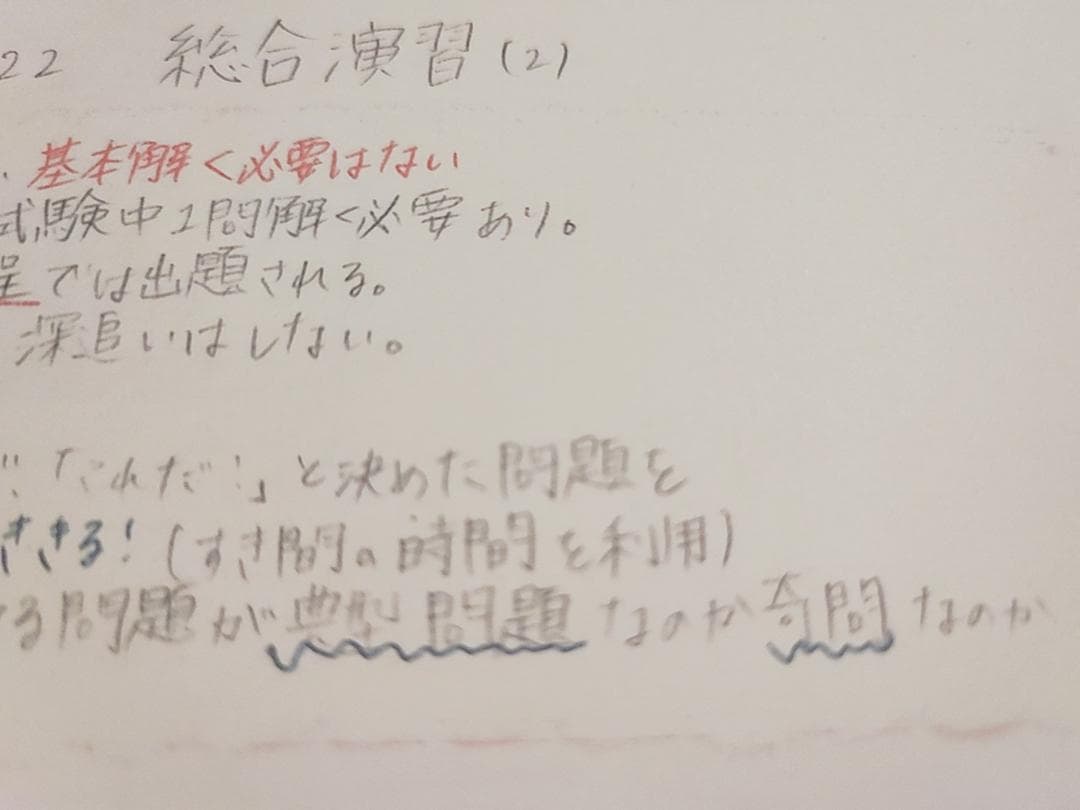 22 総合演習(2)
基本解く必要はない
試験中1問解く必要あり。
では出題される。
深追いはしない。
「これだ!」と決めた問題を
ききる!(すき間の時間を利用)
る問題が典型問題なのか奇問なのか